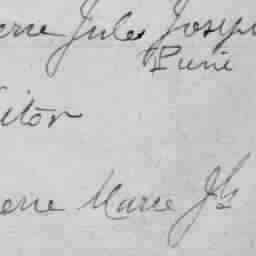 erre Jules Joseph
Puni
itor
erre Marie Jh